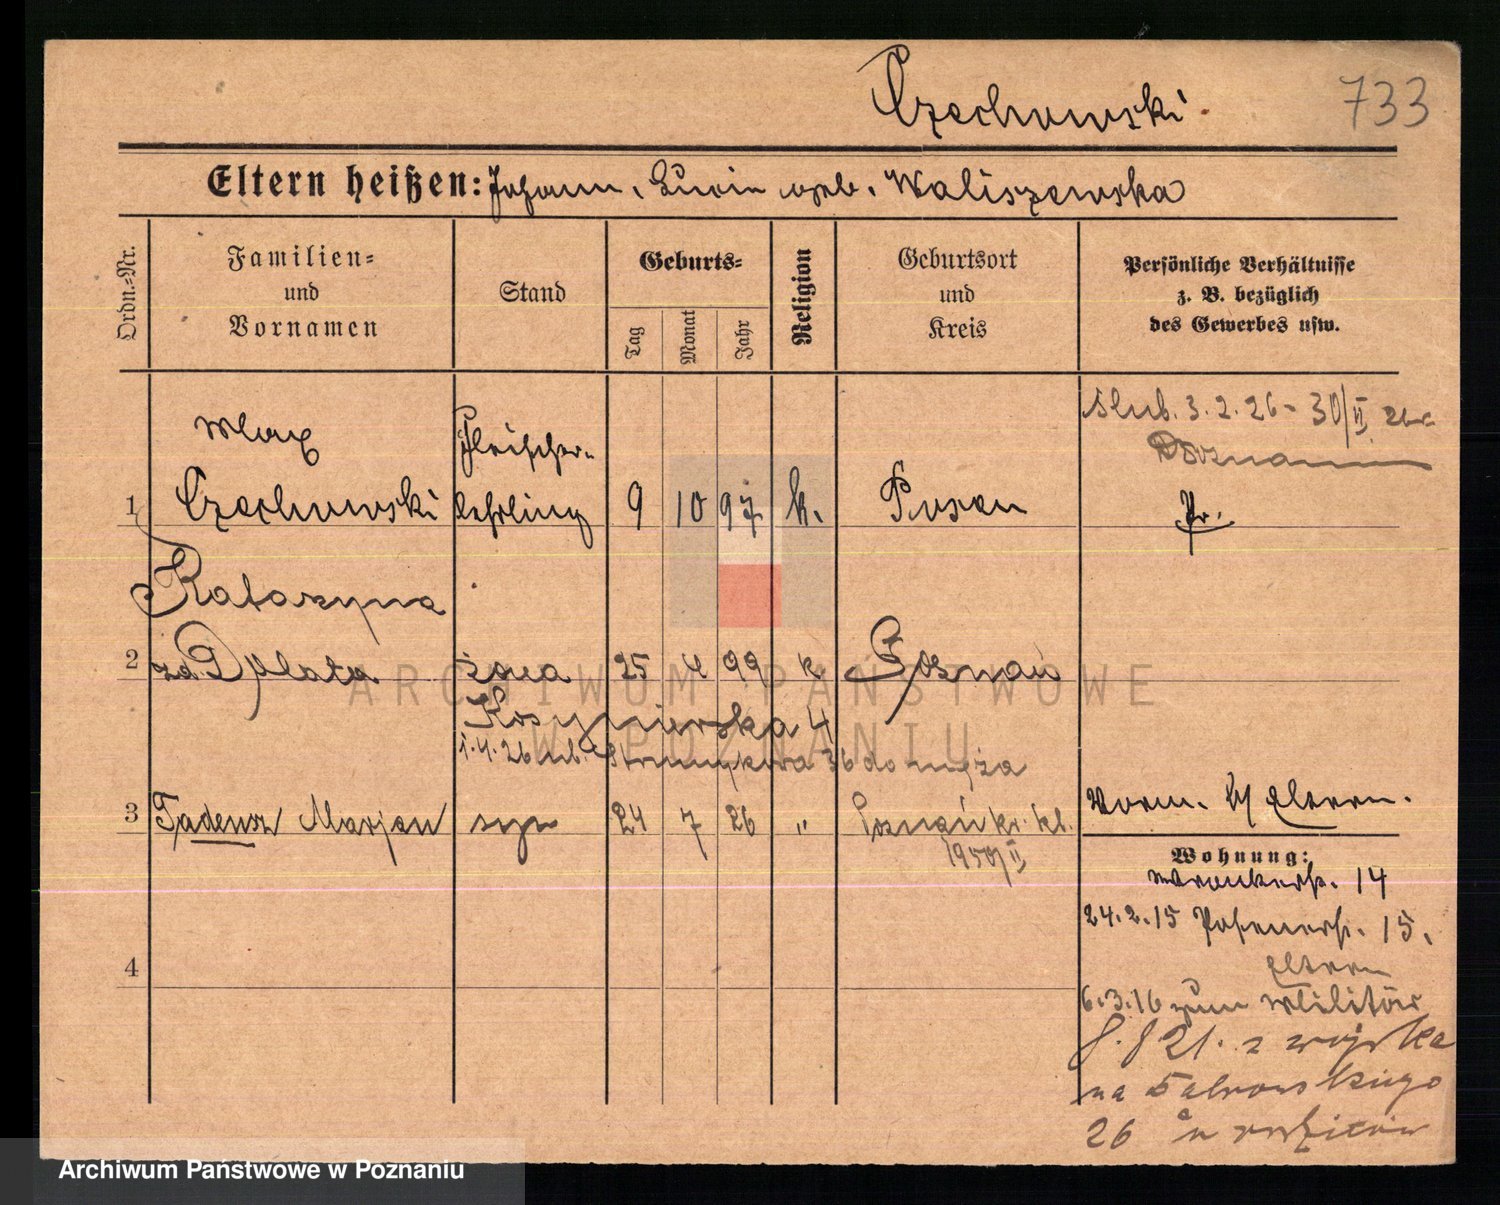 Czechowski
733
Eltern heißen: Johann, Lucia geb. Waliszewska
Ordn.-Nr.
Familien- und Vornamen
Stand
Geburts-
Tag
Monat
Jahr
Religion
Geburtsort und Kreis
Persönliche Verhältnisse
z. B. bezüglich
des Gewerbes usw.
ślub. 3.2.26 - 30/II
Poznań
Max
Fleischer-
1 Czechowski lehrling 9 10 97 k. Posen Pr.
Katarzyna
2 żona 25 4 99 k Poznań
4
1.4.26 Strumykowa 36 do męża
3 Tadeusz Marjan syn 24 7 26 " Poznań
1950/II
Vorm. Eltern.
Wohnung:
Wronkerstr. 14
24.2.15 Posenerstr. 15.
Eltern
6.3.16 zum Militär
8.8 21. z wojska
na Dąbrowskiego
26 rodziców
4
ARCHIWUM PAŃSTWOWE
W POZNANIU
Archiwum Państwowe w Poznaniu